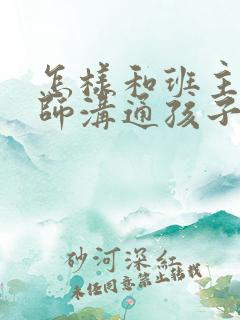 怎樣和班主
師溝通孩子
砂河深紅
未經同意禁止轉載